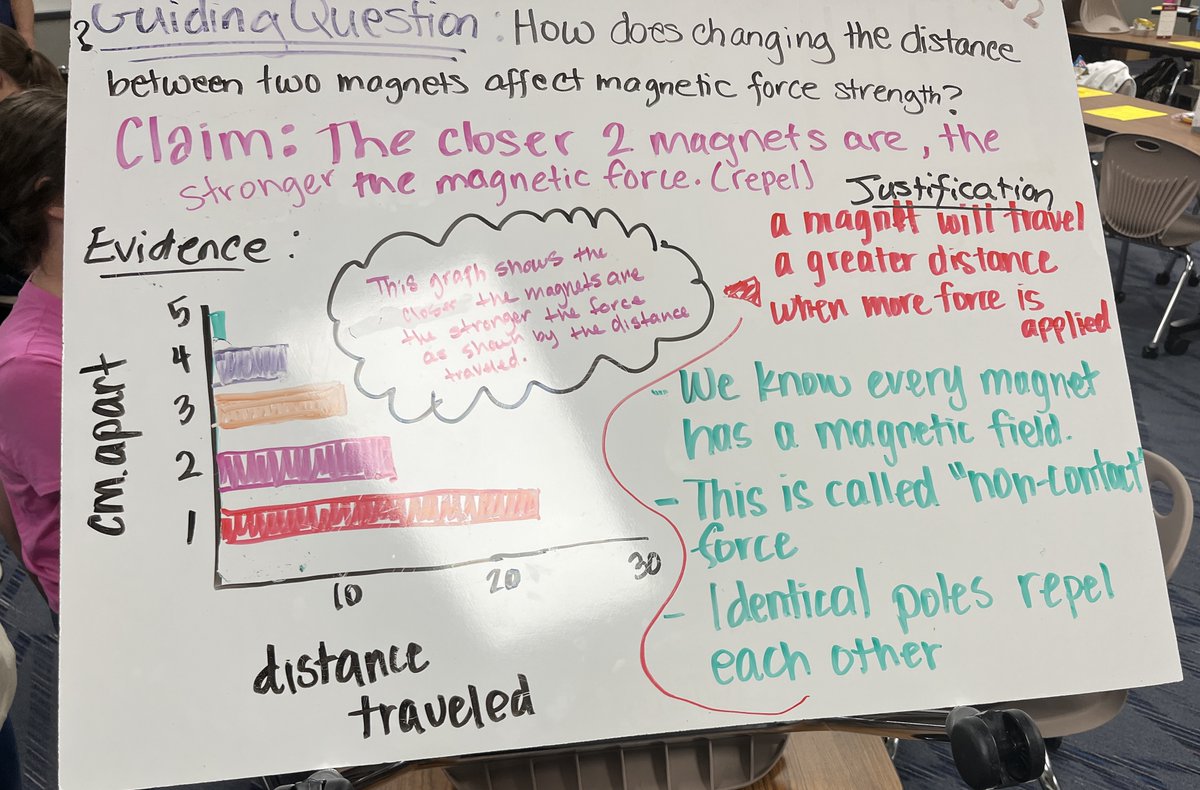 ? Guiding Question : How does changing the distance
between two magnets affect magnetic force strength?
Claim: The closer 2 magnets are, the
stronger the magnetic force. (repel)
Evidence :
This graph shows the
closer the magnets are
the stronger the force
as shown by the distance
traveled.
cm. apart
5
4
3
2
1
10 20 30
distance
traveled
Justification
a magnet will travel
a greater distance
when more force is
applied
- We know every magnet
has a magnetic field.
- This is called "non-contact"
force
- Identical poles repel
each other